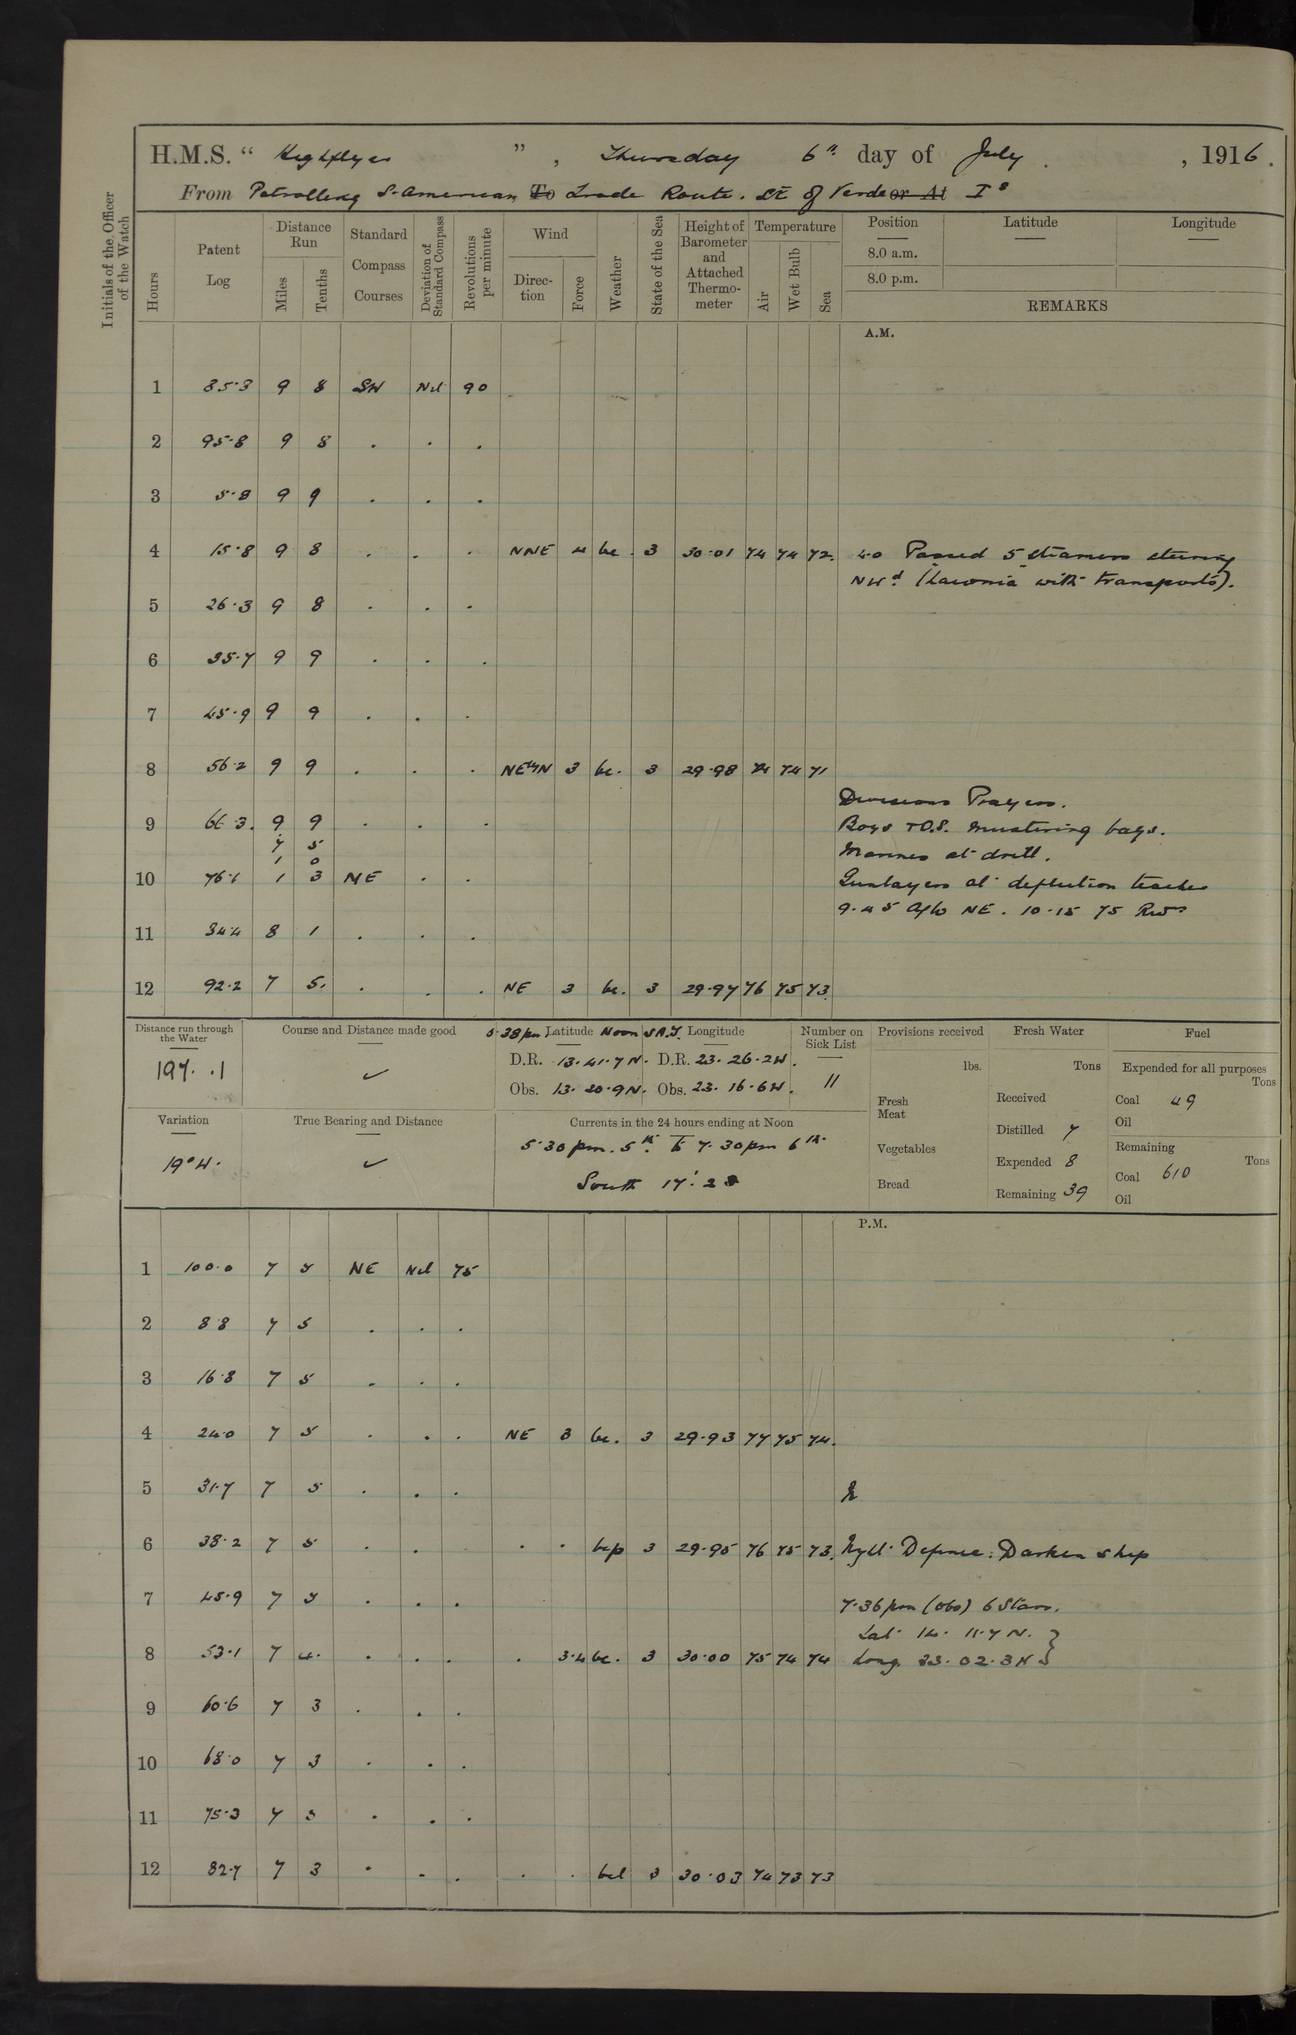 H.M.S. " Highflyer " , Thursday 6th day of July , 1916.
From Patrolling S. American To Trade Route. SE of Verde or At Is
Initials of the Officer of the Watch
Hours
Patent Log
Distance Run
Miles
Tenths
Standard Compass Courses
Deviation of Standard Compass
Revolutions per minute
Wind
Direction
Force
Weather
State of the Sea
Height of Barometer and Attached Thermometer
Temperature
Air
Wet Bulb
Sea
Position
8.0 a.m.
8.0 p.m.
Latitude
Longitude
REMARKS
A.M.
1 85.3 9 8 SW Nil 90
2 95.8 9 8 . . .
3 5.8 9 9 . . .
4 15.8 9 8 . . . NNE 4 bc. 3 30.01 74 74 72. 4.0 Passed 5 steamers steering
NWd. (Laconia with transports).
5 26.3 9 8 . . .
6 35.7 9 9 . . .
7 45.9 9 9 . . .
8 56.2 9 9 . . . NEbyN 3 bc. 3 29.98 74 74 71
Divisions Prayers.
9 66.3. 9 9 . . . Boys + O.S. mustering bags.
7 5
Marines at drill.
1 0
10 76.1 1 3 NE . . Gunlayers at deflection teacher
9.45 A/co NE. 10.15 75 Revs
11 84.4 8 1 . . .
12 92.2 7 5. . . . NE 3 bc. 3 29.97 76 75 73.
Distance run through the Water
197.1
Course and Distance made good
✓
5.38pm Latitude Noon S.A.T. Longitude
D.R. 13.41.7N. D.R. 23.26.2W.
Obs. 13.20.9N. Obs. 23.16.6W.
Number on Sick List
11
Provisions received
lbs.
Fresh Meat
Vegetables
Bread
Fresh Water
Tons
Received
Distilled 7
Expended 8
Remaining 39
Fuel
Expended for all purposes
Tons
Coal 49
Oil
Remaining
Tons
Coal 610
Oil
Variation
19°W.
True Bearing and Distance
✓
Currents in the 24 hours ending at Noon
5.30pm. 5th. to 7.30pm 6th.
South 17'.2
P.M.
1 100.0 7 5 NE Nil 75
2 8.8 7 5 . . .
3 16.8 7 5 . . .
4 24.0 7 5 . . . NE 3 bc. 3 29.93 77 75 74.
5 31.7 7 5 . . .
6 38.2 7 5 . . . . bcp 3 29.95 76 75 73. Night Defence: Darken ship
7 45.9 7 5 . . . 7.36pm (obs) 6 Stars.
Lat. 14. 11.7 N.
8 53.1 7 4. . . . . 3.4 bc. 3 30.00 75 74 74 Long. 23. 02.3W
9 60.6 7 3 . . .
10 68.0 7 3 . . .
11 75.3 7 3 . . .
12 82.7 7 3 . . . . . bcl 3 30.03 74 73 73